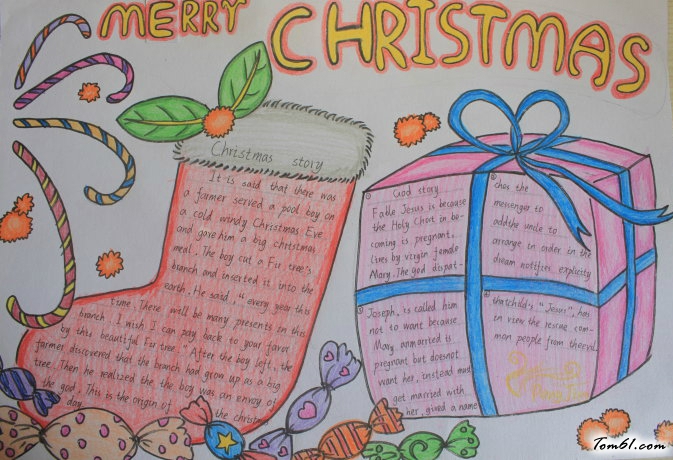 MERRY CHRISTMAS
Christmas story
It is said that there was
a farmer served a pool boy on
a cold windy Christmas Eve
and gave him a big christmas
meal. The boy cut a Fir tree's
branch and inserted it into the
earth. He said, "every year this
time. There will be many presents in this
branch. I wish I can pay back to your favor
by this beautiful Fir tree." After the boy left, the
farmer discovered that the branch had grow up as a big
tree. Then he realized the the boy was an envoy of
the god. This is the origin of the christmas
day.
① God story.
Fable Jesus is because
the Holy Ghost in be-
coming is pregnant.
lives by virgin female
Mary. The god dispat-
② Joseph, is called him
not to want because
Mary anmarried is
pregnant but doesnot
want her, instead must
get married with
her, gived a name
③ ches the
messenger to
addthe unile to
arrange in order in the
dream notifies explicity
④ thatchild's "Jesus", has
in view the rescue com-
mon people from theevil.
Tom61.com